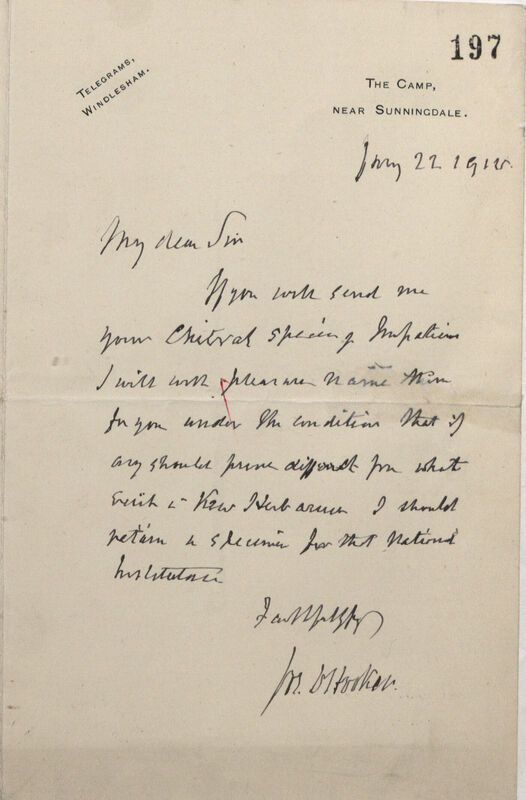 197
TELEGRAMS,
WINDLESHAM.
THE CAMP,
NEAR SUNNINGDALE.
Jany 22 1910.
My dear Sir
If you will send me
your Chitral species of Impatiens
I will with pleasure name them
for you under the condition that if
any should prove different from what
exist in Kew Herbarium I should
retain a specimen for that National
Institution
Faithfully
Jos. D Hooker.